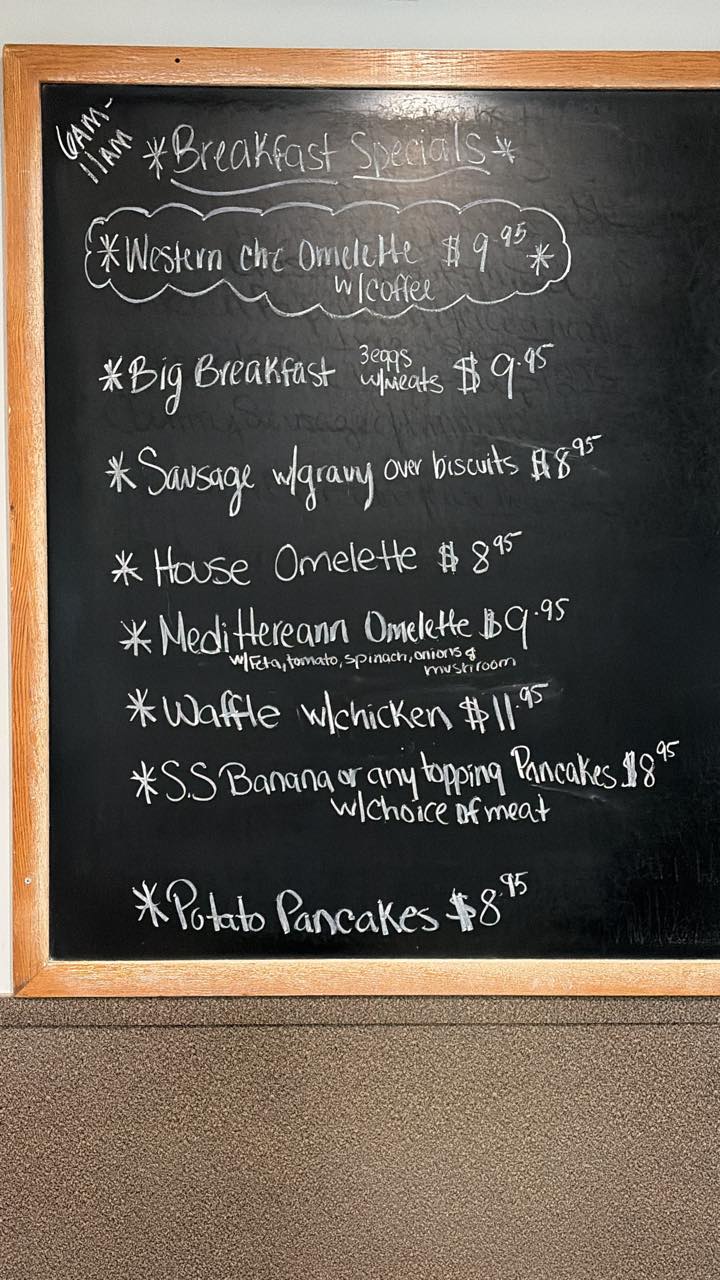 6AM-
11AM
*Breakfast Specials*
*Western chz Omelette $9.95*
w/coffee
*Big Breakfast 3eggs w/meats $9.95
*Sausage w/gravy over biscuits $8.95
*House Omelette $8.95
*Medittereann Omelette $9.95
w/Feta, tomato, spinach, onions &
mushroom
*Waffle w/chicken $11.95
*S.S Banana or any topping Pancakes $8.95
w/choice of meat
*Potato Pancakes $8.95